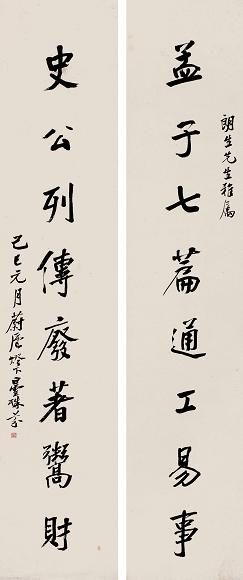 朗生先生雅屬
孟子七篇通工易事
史公列傳廢著鬻財
己巳元月蔚